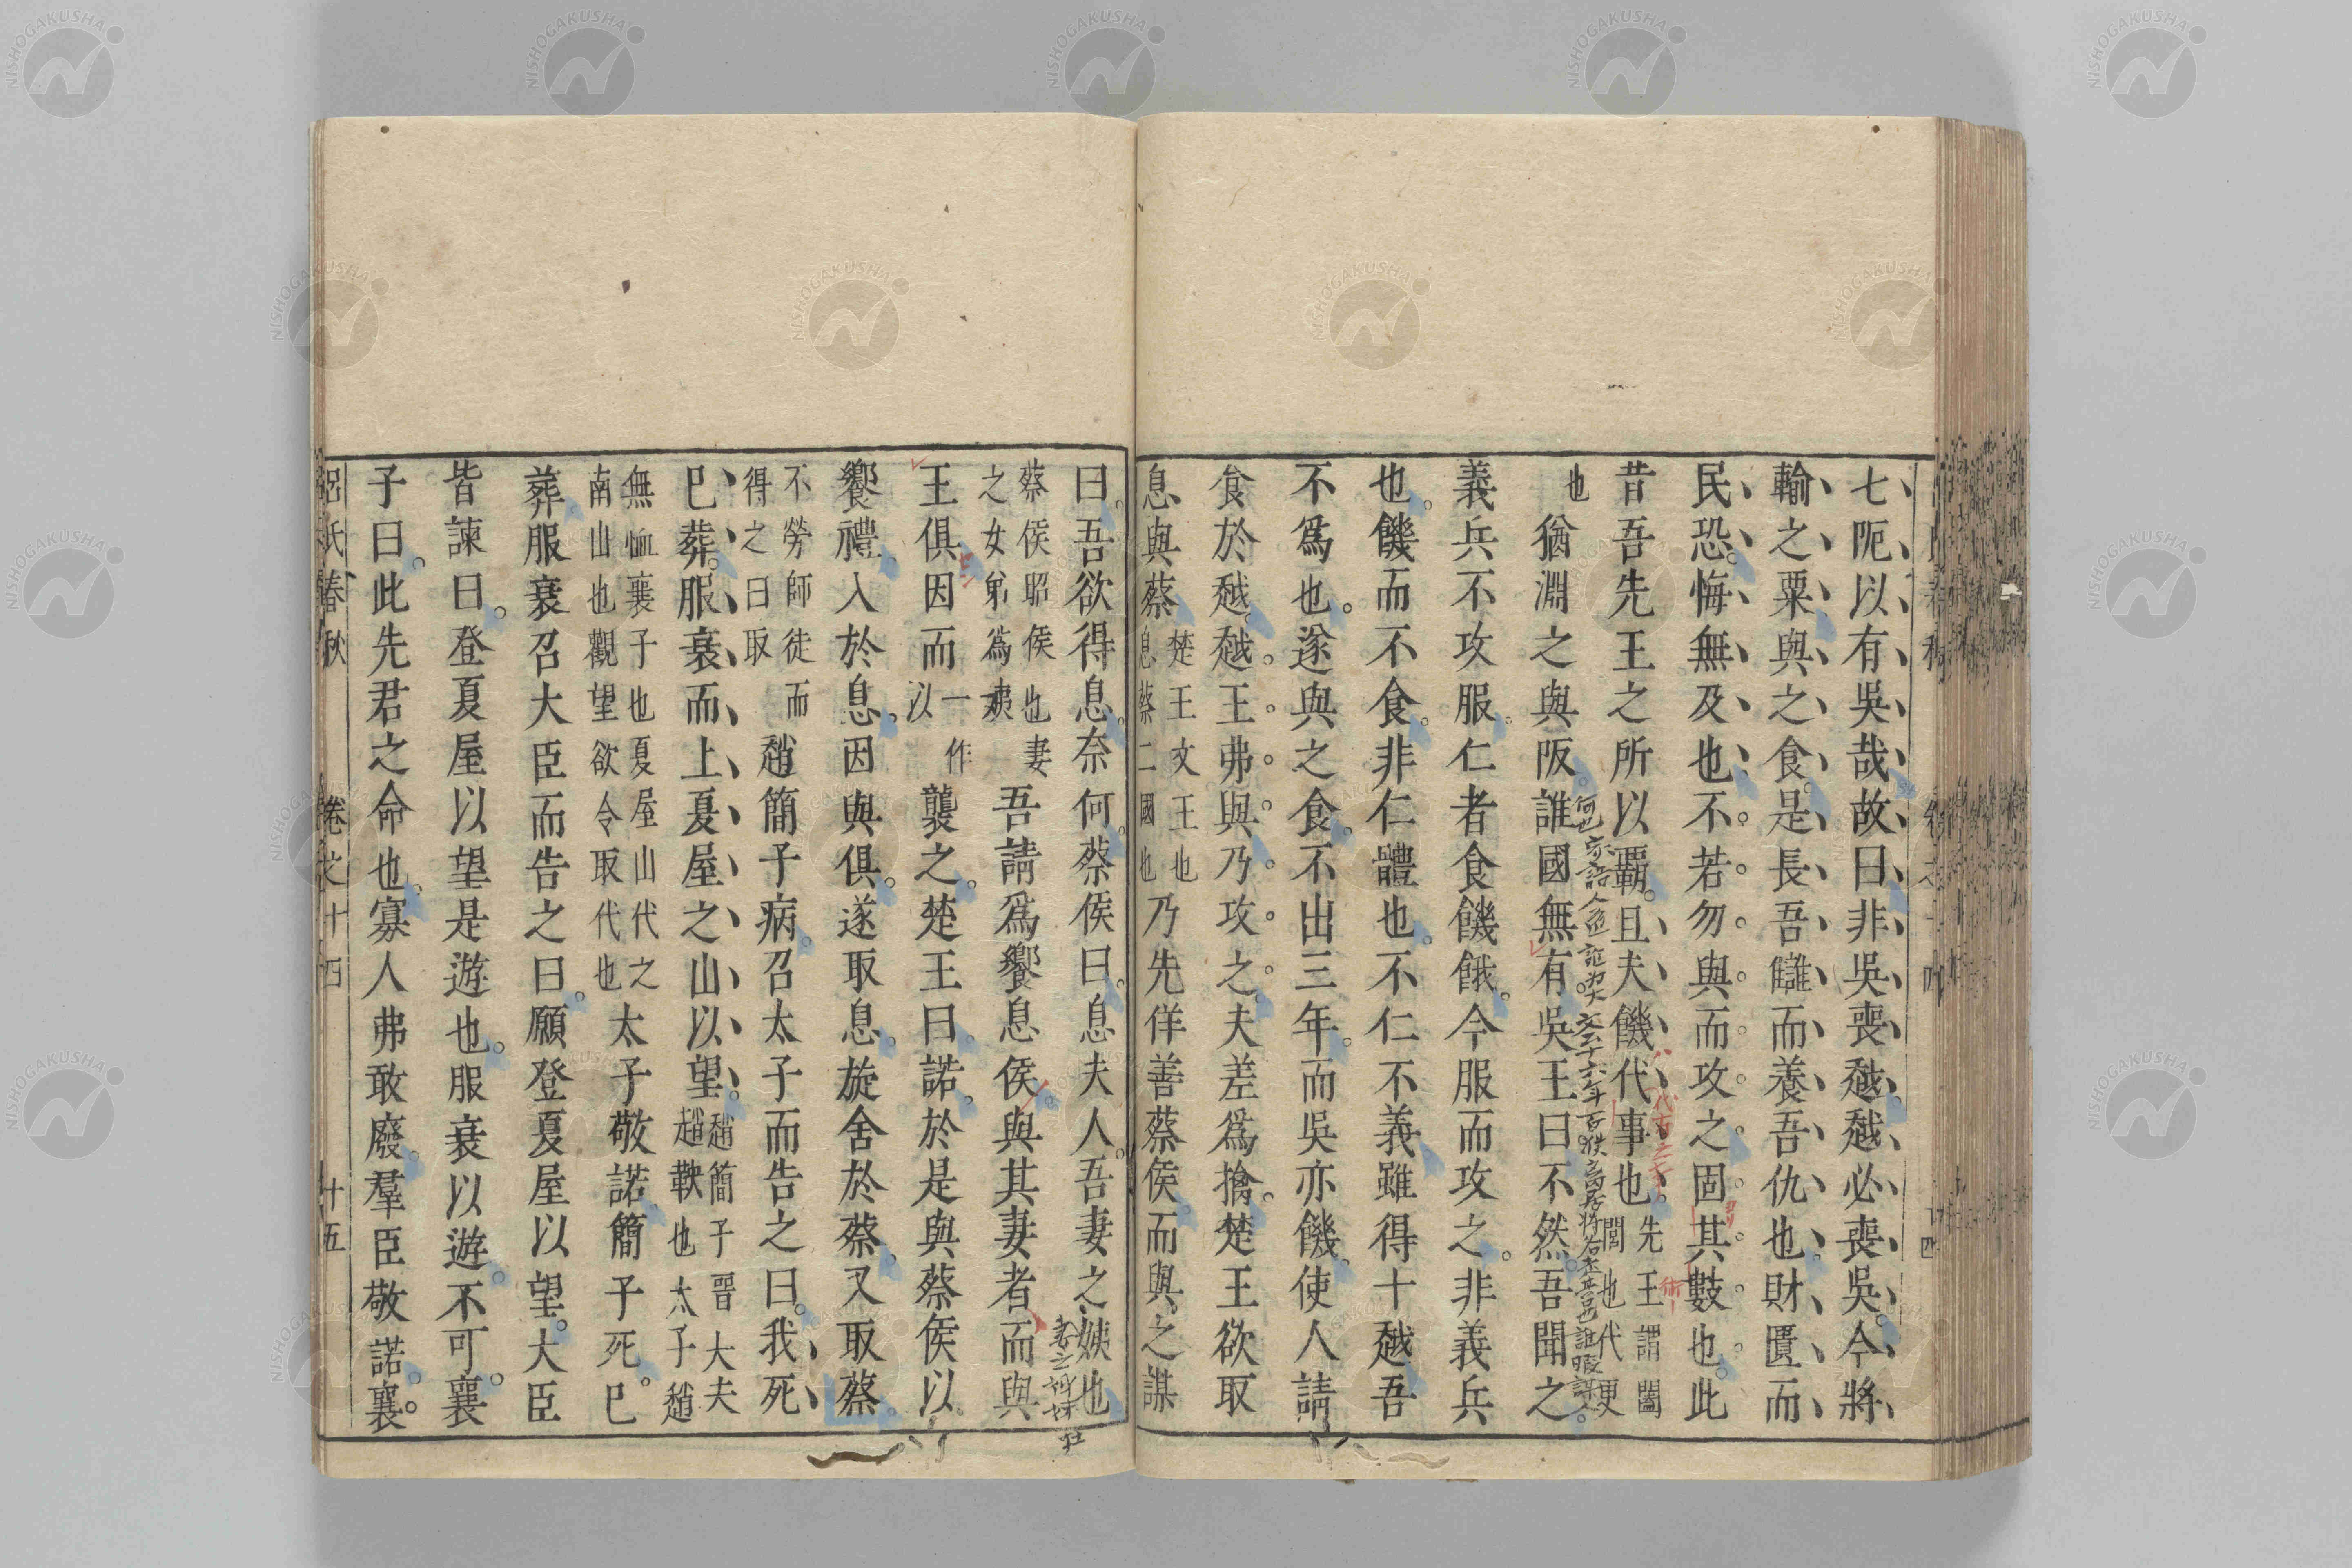 七阨以有吳哉故曰非吳喪越越必喪吳今將
輸之粟與之食是長吾讎而養吾仇也財匱而
民恐悔無及也不若勿與而攻之固其數也此
昔吾先王之所以覇且夫饑代事也先王謂闔閭也代更
也猶淵之與阪誰國無有吳王曰不然吾聞之
義兵不攻服仁者食饑餓今服而攻之非義兵
也饑而不食非仁體也不仁不義雖得十越吾
不爲也遂與之食不出三年而吳亦饑使人請
食於越越王弗與乃攻之夫差爲擒楚王欲取
息與蔡楚王文王也息蔡二國也乃先佯善蔡侯而與之謀
曰吾欲得息奈何蔡侯曰息夫人吾妻之姨也
蔡侯昭侯也妻之女弟爲姨吾請爲饗息侯與其妻者而與
王俱因而一作以襲之楚王曰諾於是與蔡侯以
饗禮入於息因與俱遂取息旋舍於蔡又取蔡
不勞師徒而得之曰取趙簡子病召太子而告之曰我死
已葬服衰而上夏屋之山以望趙簡子晉大夫趙鞅也太子趙
無恤襄子也夏屋山代之南山也觀望欲令取代也太子敬諾簡子死已
葬服衰召大臣而告之曰願登夏屋以望大臣
皆諫曰登夏屋以望是遊也服衰以遊不可襄
子曰此先君之命也寡人弗敢廢羣臣敬諾襄
呂氏春秋 卷之十四 十五
NISHOGAKUSHA